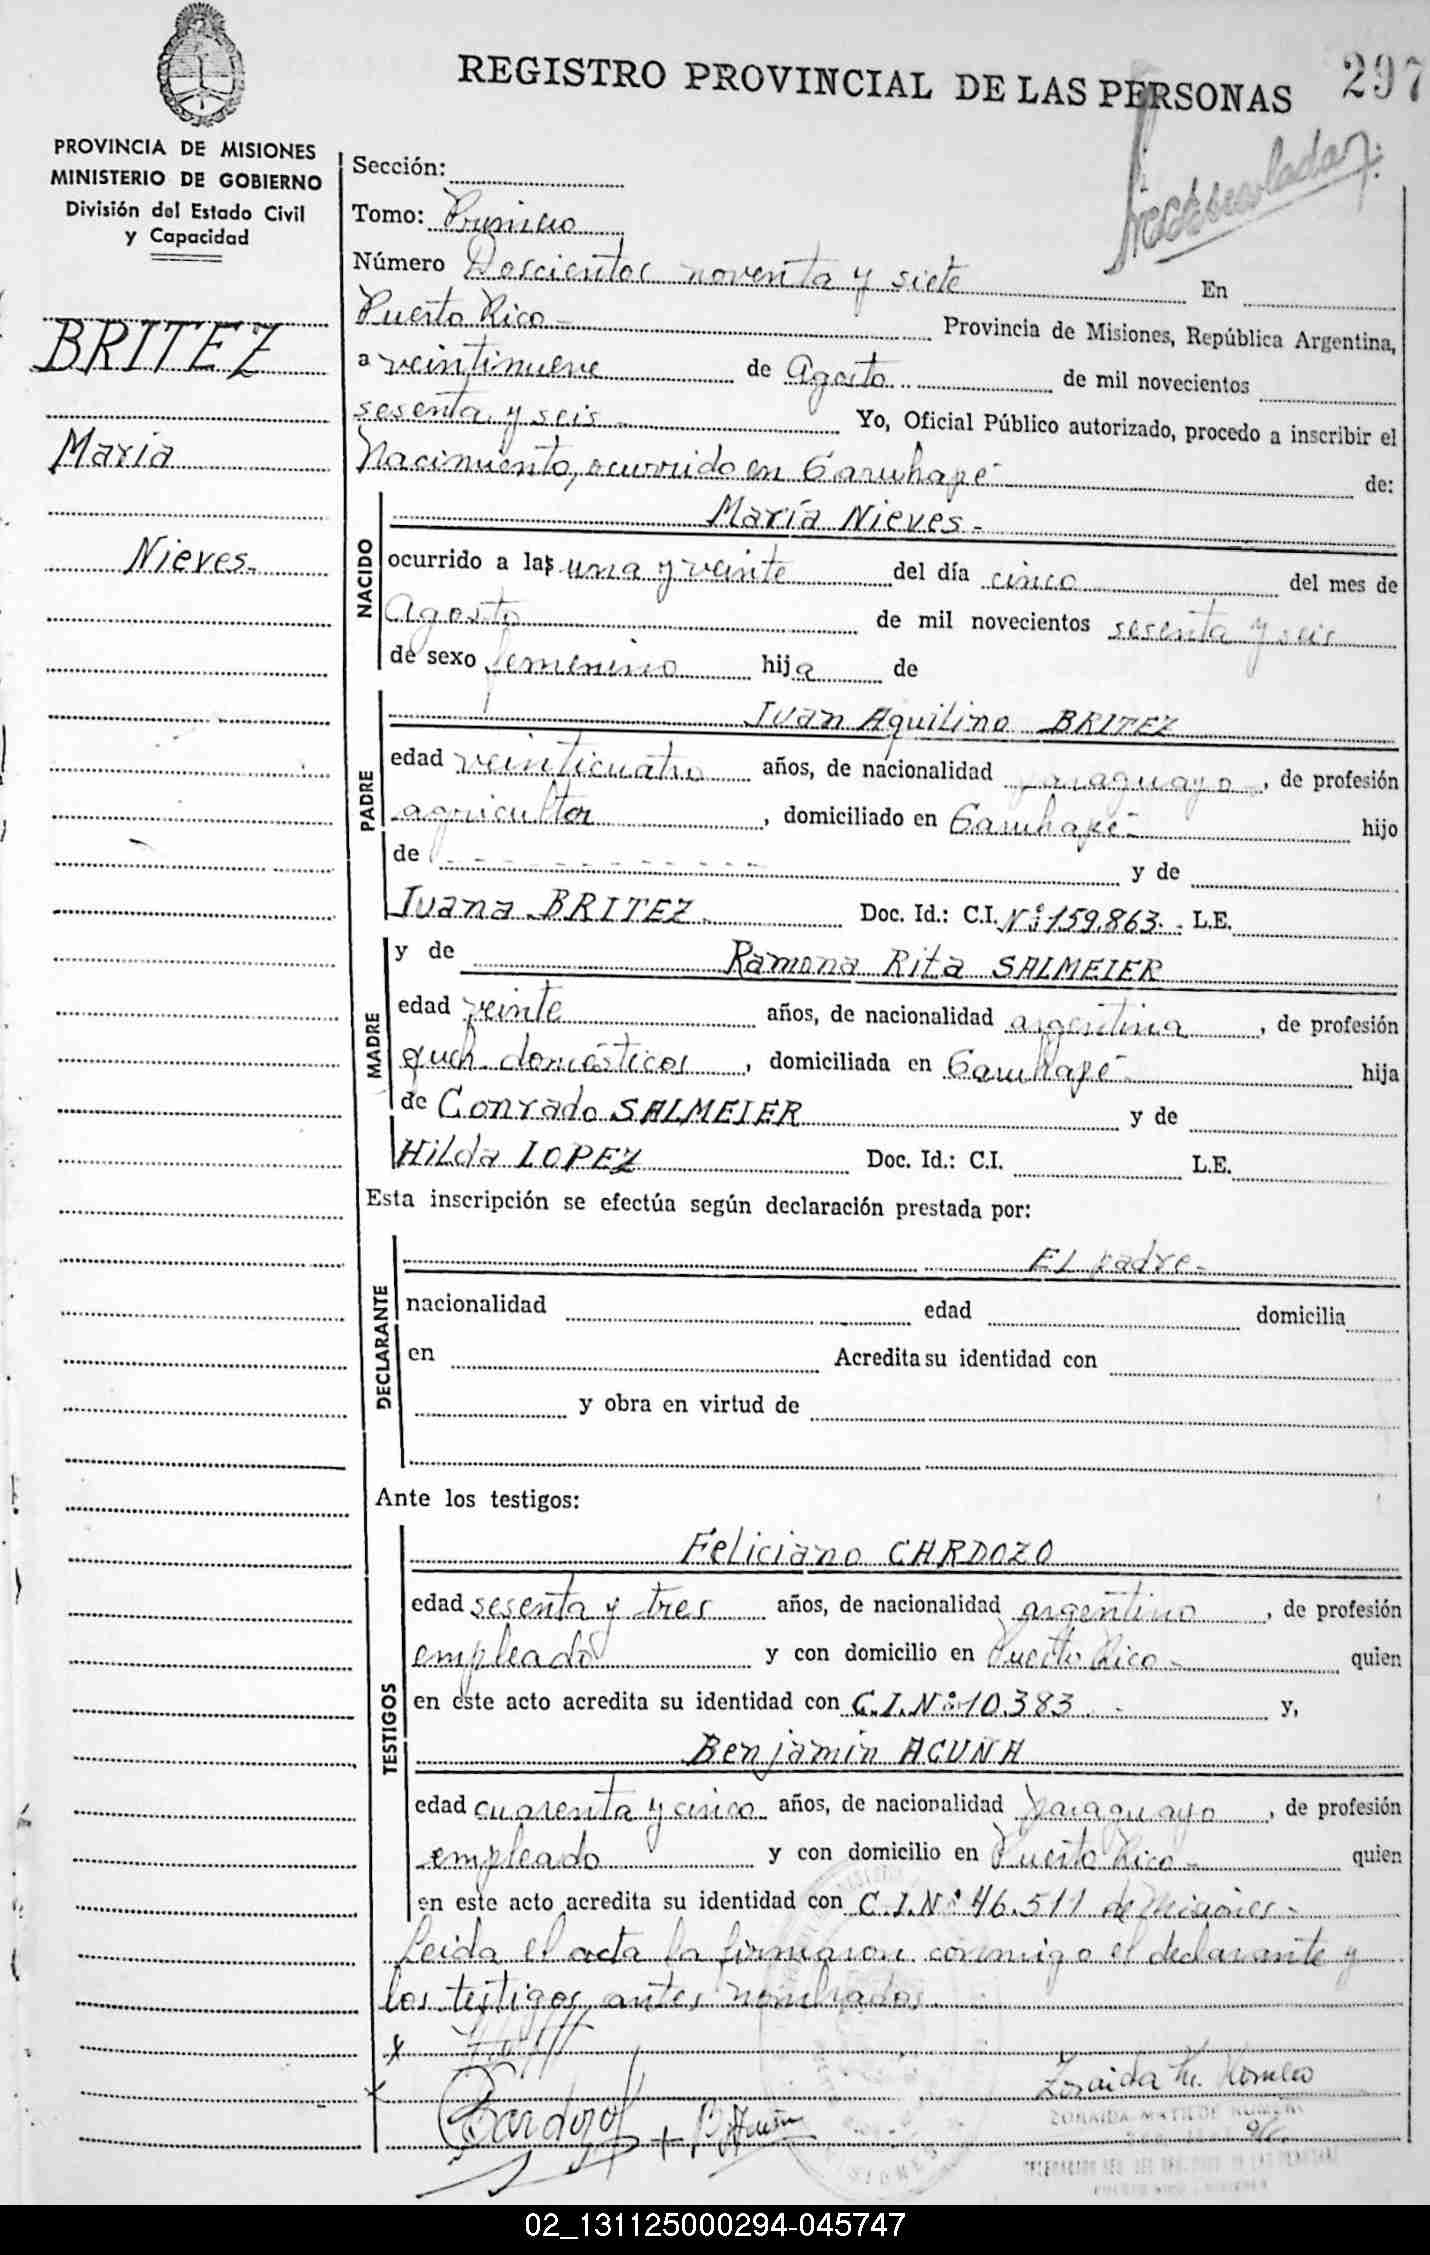 REGISTRO PROVINCIAL DE LAS PERSONAS
297
PROVINCIA DE MISIONES
MINISTERIO DE GOBIERNO
División del Estado Civil
y Capacidad
BRITEZ
Maria
Nieves.
Sección:
Tomo: Primero
Número Doscientos noventa y siete En
Puerto Rico - Provincia de Misiones, República Argentina,
a veintinueve de Agosto de mil novecientos
sesenta y seis - Yo, Oficial Público autorizado, procedo a inscribir el
Nacimiento, ocurrido en Garuhapé - de:
NACIDO
María Nieves -
ocurrido a las una y veinte del día cinco del mes de
Agosto de mil novecientos sesenta y seis
de sexo femenino hija de
PADRE
Juan Aquilino BRITEZ
edad veinticuatro años, de nacionalidad paraguayo, de profesión
agricultor, domiciliado en Garuhapé - hijo
de - - - - - - - - - - - - - y de
Juana BRITEZ. Doc. Id.: C.I. Nº 159.863. L.E.
MADRE
y de Ramona Rita SALMEIER
edad veinte años, de nacionalidad argentina, de profesión
queh. domésticos, domiciliada en Garuhapé - hija
de Conrado SALMEIER y de
Hilda LOPEZ Doc. Id.: C.I. L.E.
Esta inscripción se efectúa según declaración prestada por:
DECLARANTE
El padre -
nacionalidad edad domicilia
en Acredita su identidad con
y obra en virtud de
Ante los testigos:
TESTIGOS
Feliciano CARDOZO
edad sesenta y tres años, de nacionalidad argentino, de profesión
empleado y con domicilio en Puerto Rico - quien
en este acto acredita su identidad con C.I. Nº 10.383 - y,
Benjamín ACUÑA
edad cuarenta y cinco años, de nacionalidad paraguayo, de profesión
empleado y con domicilio en Puerto Rico - quien
en este acto acredita su identidad con C.I. Nº 46.511 de Misiones -
Leida el acta la firmaron conmigo el declarante y
los testigos antes nombrados.
x
Cardozo
+ B. Acuña
Zoraida M. Romero
ZORAIDA MATILDE ROMERO
02_131125000294-045747